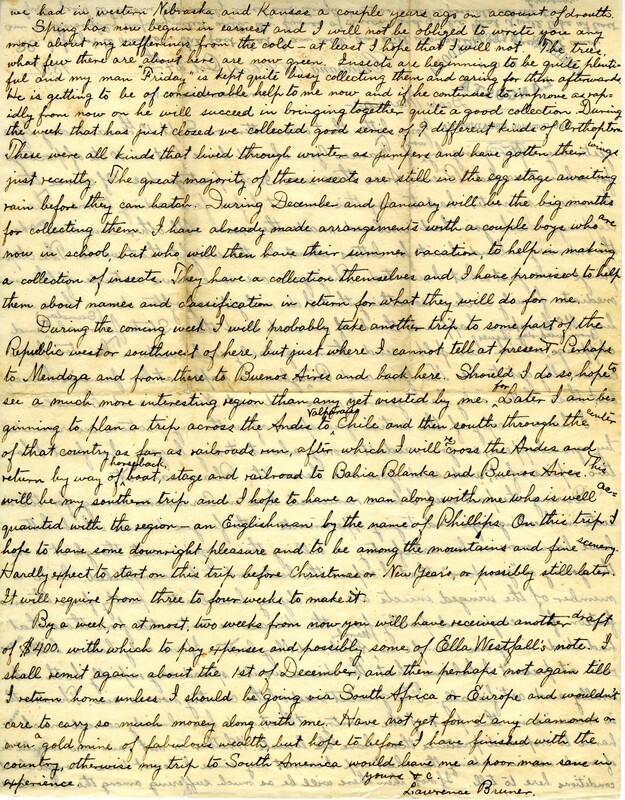 we had in western Nebraska and Kansas a couple years ago on account of drouth.
Spring has now begun in earnest and I will not be obliged to write you any
more about my sufferings from the cold – at least I hope that I will not. The trees,
what few there are about here are now green. Insects are beginning to be quite plenti-
ful and my man "Friday" is kept quite busy collecting them and caring for them afterwards.
He is getting to be of considerable help to me now and if he continues to improve as rap-
idly from now on he will succeed in bringing together quite a good collection. During
the week that has just closed we collected good series of 9 different kinds of Orthoptera
These were all kinds that lived through winter as jumpers and have gotten their wings
just recently. The great majority of these insects are still in the egg stage awaiting
rain before they can hatch. During December and January will be the big months
for collecting them. I have already made arrangements with a couple boys who are
now in school, but who will then have their summer vacation, to help in making
a collection of insects. They have a collection themselves and I have promised to help
them about names and classification in return for what they will do for me.
During the coming week I will probably take another trip to some part of the
Republic west or southwest of here, but just where I cannot tell at present. Perhaps
to Mendoza and from there to Buenos Aires and back here. Should I do so, hope to
see a much more interesting region than any yet visited by me. Later I am be-
ginning to plan a trip across the Andes to Valparaiso Chile and then south through the center
of that country as far as railroads run, after which I will cross the Andes and
return by way of horseback, boat, stage and railroad to Bahia Blanka and Buenos Aires. This
will be my southern trip and I hope to have a man along with me who is well ac-
quainted with the region – an Englishman by the name of Phillips. On this trip I
hope to have some downright pleasure and to be among the mountains and fine scenery.
Hardly expect to start on this trip before Christmas or New Years, or possibly still later.
It will require from three to four weeks to make it.
By a week, or at most, two weeks from now you will have received another draft
of $400 with which to pay expenses and possibly some of Ella Westfall's note. I
shall remit again about the 1st of December, and then perhaps not again till
I return home unless I should be going via South Africa or Europe and wouldn't
care to carry so much money along with me. Have not yet found any diamonds or
even a gold mine of fabulous wealth, but hope to before I have finished with the
country, otherwise my trip to South America would leave me a poor man save in
experience.
yours &c.
Lawrence Bruner.